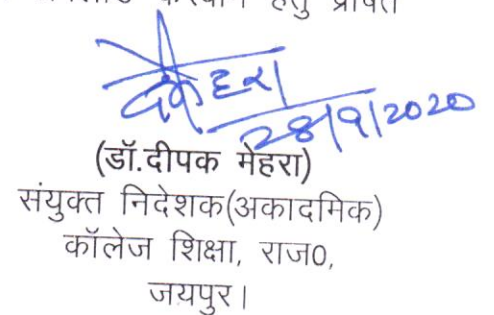 करवाने हेतु प्रेषित
28/9/2020
(डॉ.दीपक मेहरा)
संयुक्त निदेशक(अकादमिक)
कॉलेज शिक्षा, राज0,
जयपुर।